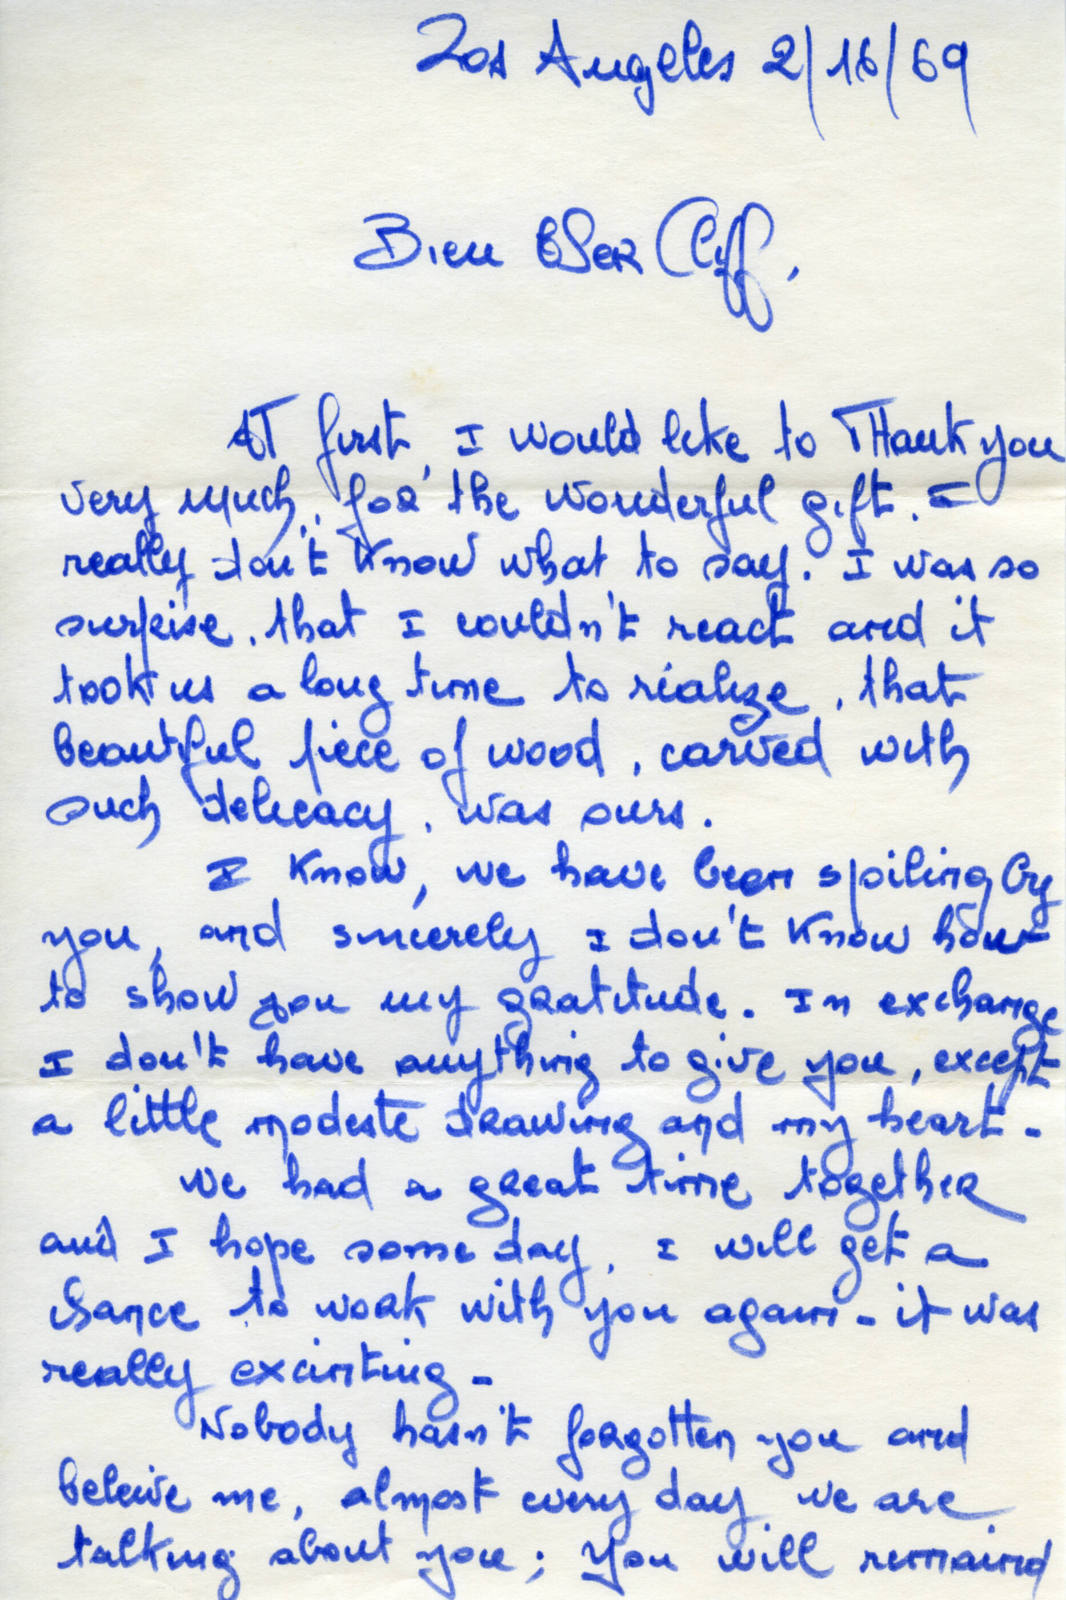 Los Angeles 2/16/69
Bien cher Cliff,
AT first, I would like to THank you
very much, for the wonderful gift. I
really don't know what to say. I was so
surprise, that I couldn't react and it
took us a long time to réalize, that
beautiful piece of wood, carved with
such delicacy, was ours.
I know, we have been spoiling by
you, and sincerely I don't know how
to show you my gratitude. In exchange
I don't have anything to give you, except
a little modeste drawing and my heart -
we had a great time together
and I hope some day, I will get a
chance to work with you again - it was
really excinting -
Nobody hasn't forgotten you and
beleive me, almost every day we are
talking about you; you will remaind